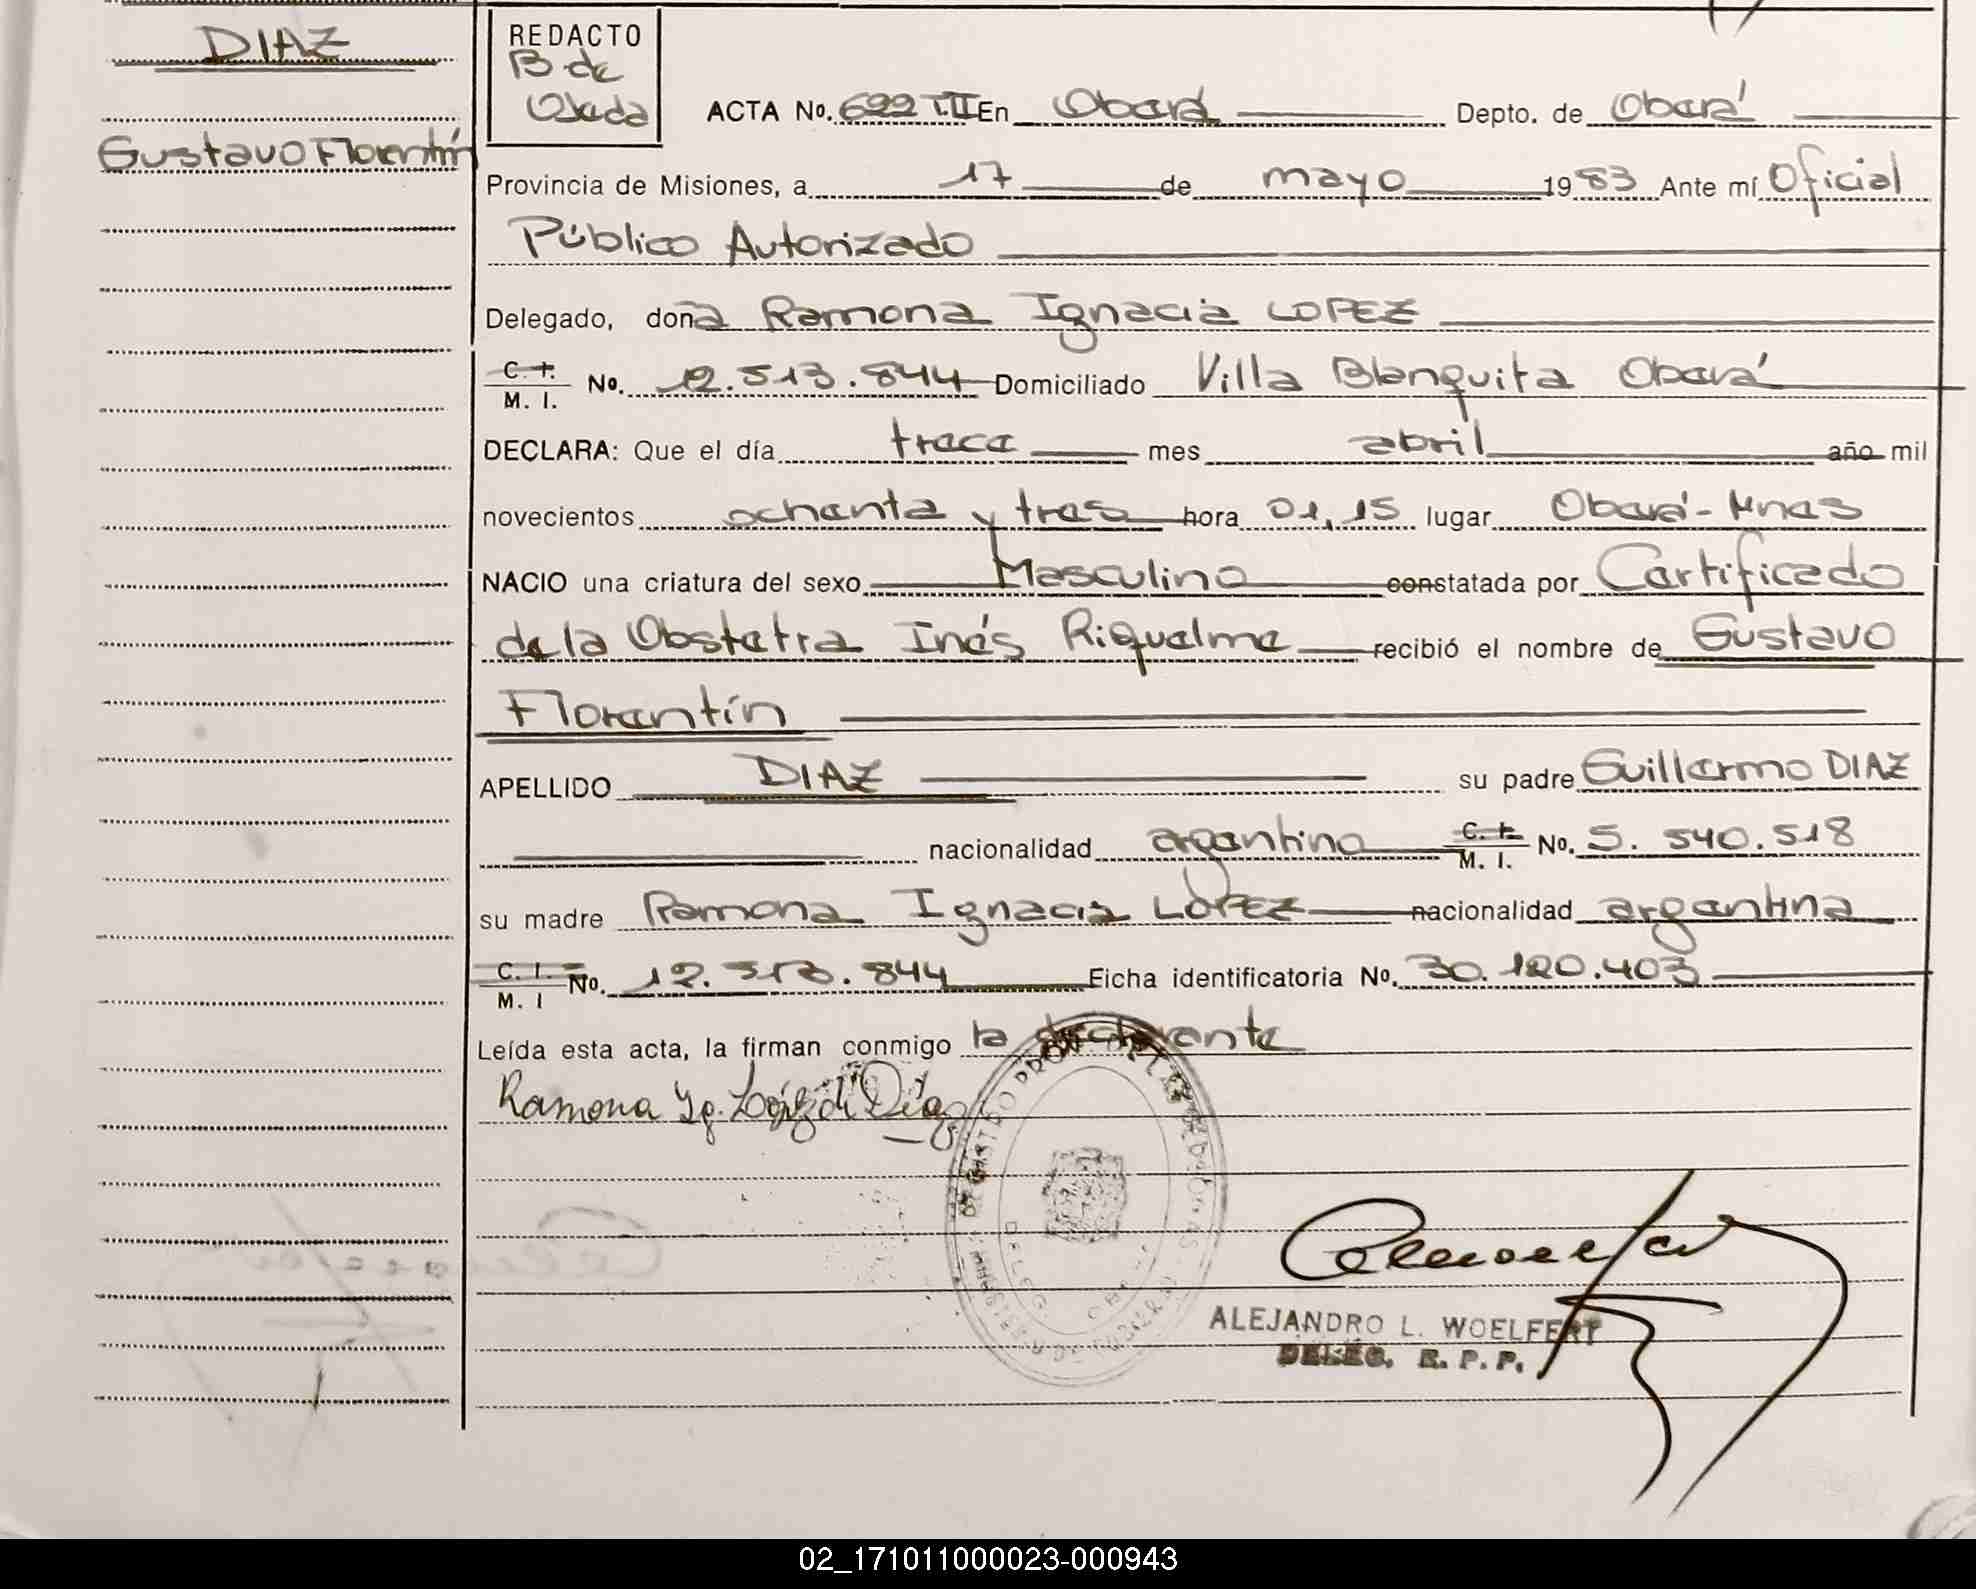 DIAZ
Gustavo Florentín
REDACTO
B de
Ojeda
ACTA No. 622 T.II En Oberá Depto. de Oberá
Provincia de Misiones, a 17 de mayo 1983 Ante mí Oficial
Público Autorizado
Delegado, doña Ramona Ignacia LOPEZ
C. I. M. I. No. 12.513.844 Domiciliado Villa Blanquita Oberá
DECLARA: Que el día trece mes abril año mil
novecientos ochenta y tres hora 01,15 lugar Oberá-Mnes
NACIO una criatura del sexo Masculino constatada por Certificado
de la Obstetra Inés Riquelme recibió el nombre de Gustavo
Florentín
APELLIDO DIAZ su padre Guillermo DIAZ
nacionalidad argentino C. I. M. I. No. 5. 540.518
su madre Ramona Ignacia LOPEZ nacionalidad argentina
C. I. M. I No. 12.513.844 Ficha identificatoria No. 30.120.403
Leída esta acta, la firman conmigo la declarante
Ramona Ig. López de Díaz
ALEJANDRO L. WOELFERT
DELEG. R. P. P.
02_171011000023-000943